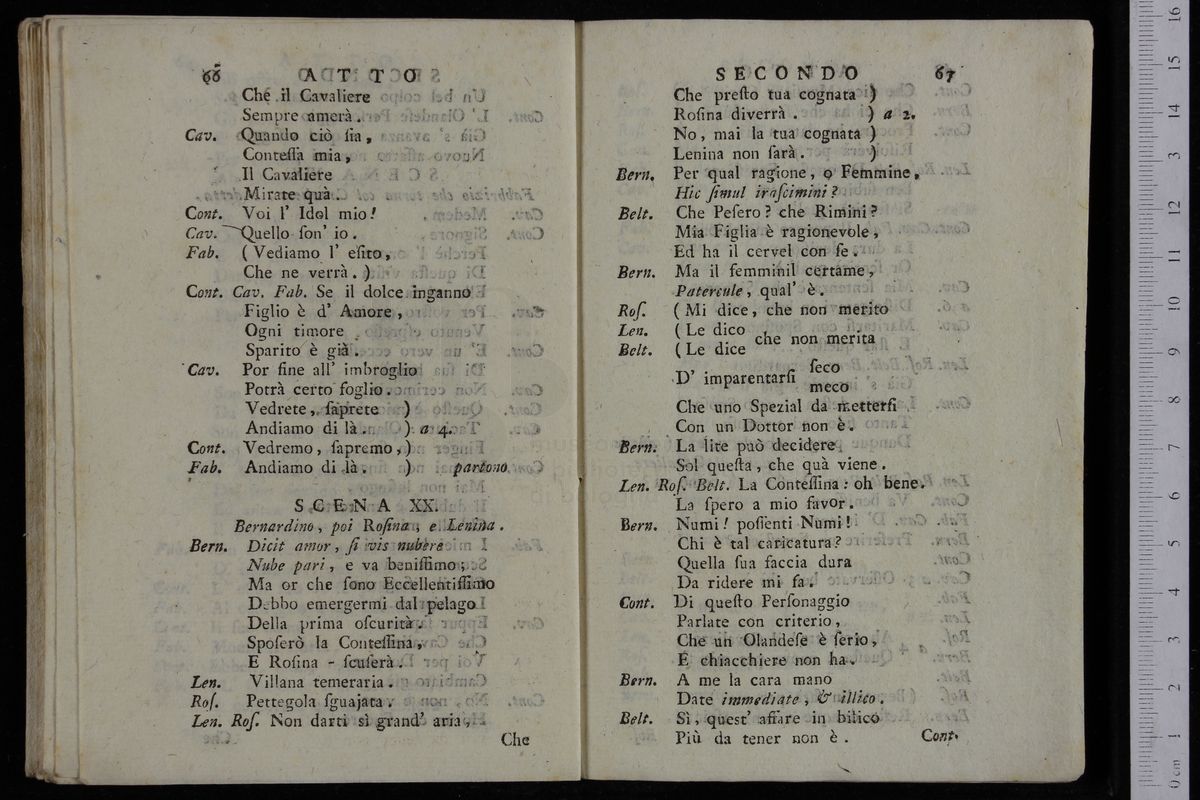 66 ATTO
Che il Cavaliere
Sempre amerà.
Cav. Quando ciò ſia,
Conteſſa mia,
Il Cavaliere
Mirate quà.
Cont. Voi l' Idol mio!
Cav. Quello ſon' io.
Fab. (Vediamo l' eſito,
Che ne verrà.)
Cont. Cav. Fab. Se il dolce inganno
Figlio è d' Amore,
Ogni timore
Sparito è già.
Cav. Por fine all' imbroglio
Potrà certo foglio.
Vedrete, ſaprete )
Andiamo di là. ) a 4.
Cont. Vedremo, ſapremo, )
Fab. Andiamo di là. ) partono.
SCENA XX.
Bernardino, poi Roſina, e Lenina.
Bern. Dicit amor, ſi vis nubere
Nube pari, e va beniſſimo;
Ma or che ſono Eccellentiſſimo
Debbo emergermi dal pelago
Della prima oſcurità.
Spoſerò la Conteſſina,
E Roſina - ſcuſerà.
Len. Villana temeraria.
Roſ. Pettegola ſguajata.
Len. Roſ. Non darti sì grand' aria,
Che
SECONDO 67
Che preſto tua cognata )
Roſina diverrà. ) a 2.
No, mai la tua cognata )
Lenina non ſarà. )
Bern. Per qual ragione, o Femmine,
Hic ſimul iraſcimini?
Belt. Che Peſero? che Rimini?
Mia Figlia è ragionevole,
Ed ha il cervel con ſe.
Bern. Ma il femminil certame,
Patercule, qual' è.
Roſ. (Mi dice, che non merito
Len. (Le dico che non merita
Belt. (Le dice
D' imparentarſi ſeco
meco
Che uno Spezial da metterſi
Con un Dottor non è.
Bern. La lite può decidere
Sol queſta, che quà viene.
Len. Roſ. Belt. La Conteſſina: oh bene.
La ſpero a mio favor.
Bern. Numi! poſſenti Numi!
Chi è tal caricatura?
Quella ſua faccia dura
Da ridere mi fa.
Cont. Di queſto Perſonaggio
Parlate con criterio,
Che un Olandeſe è ſerio,
E chiacchiere non ha.
Bern. A me la cara mano
Date immediate, & illico.
Belt. Sì, queſt' affare in bilico
Più da tener non è.
Cont.
0 cm 1 2 3 4 5 6 7 8 9 10 11 12 13 14 15 16